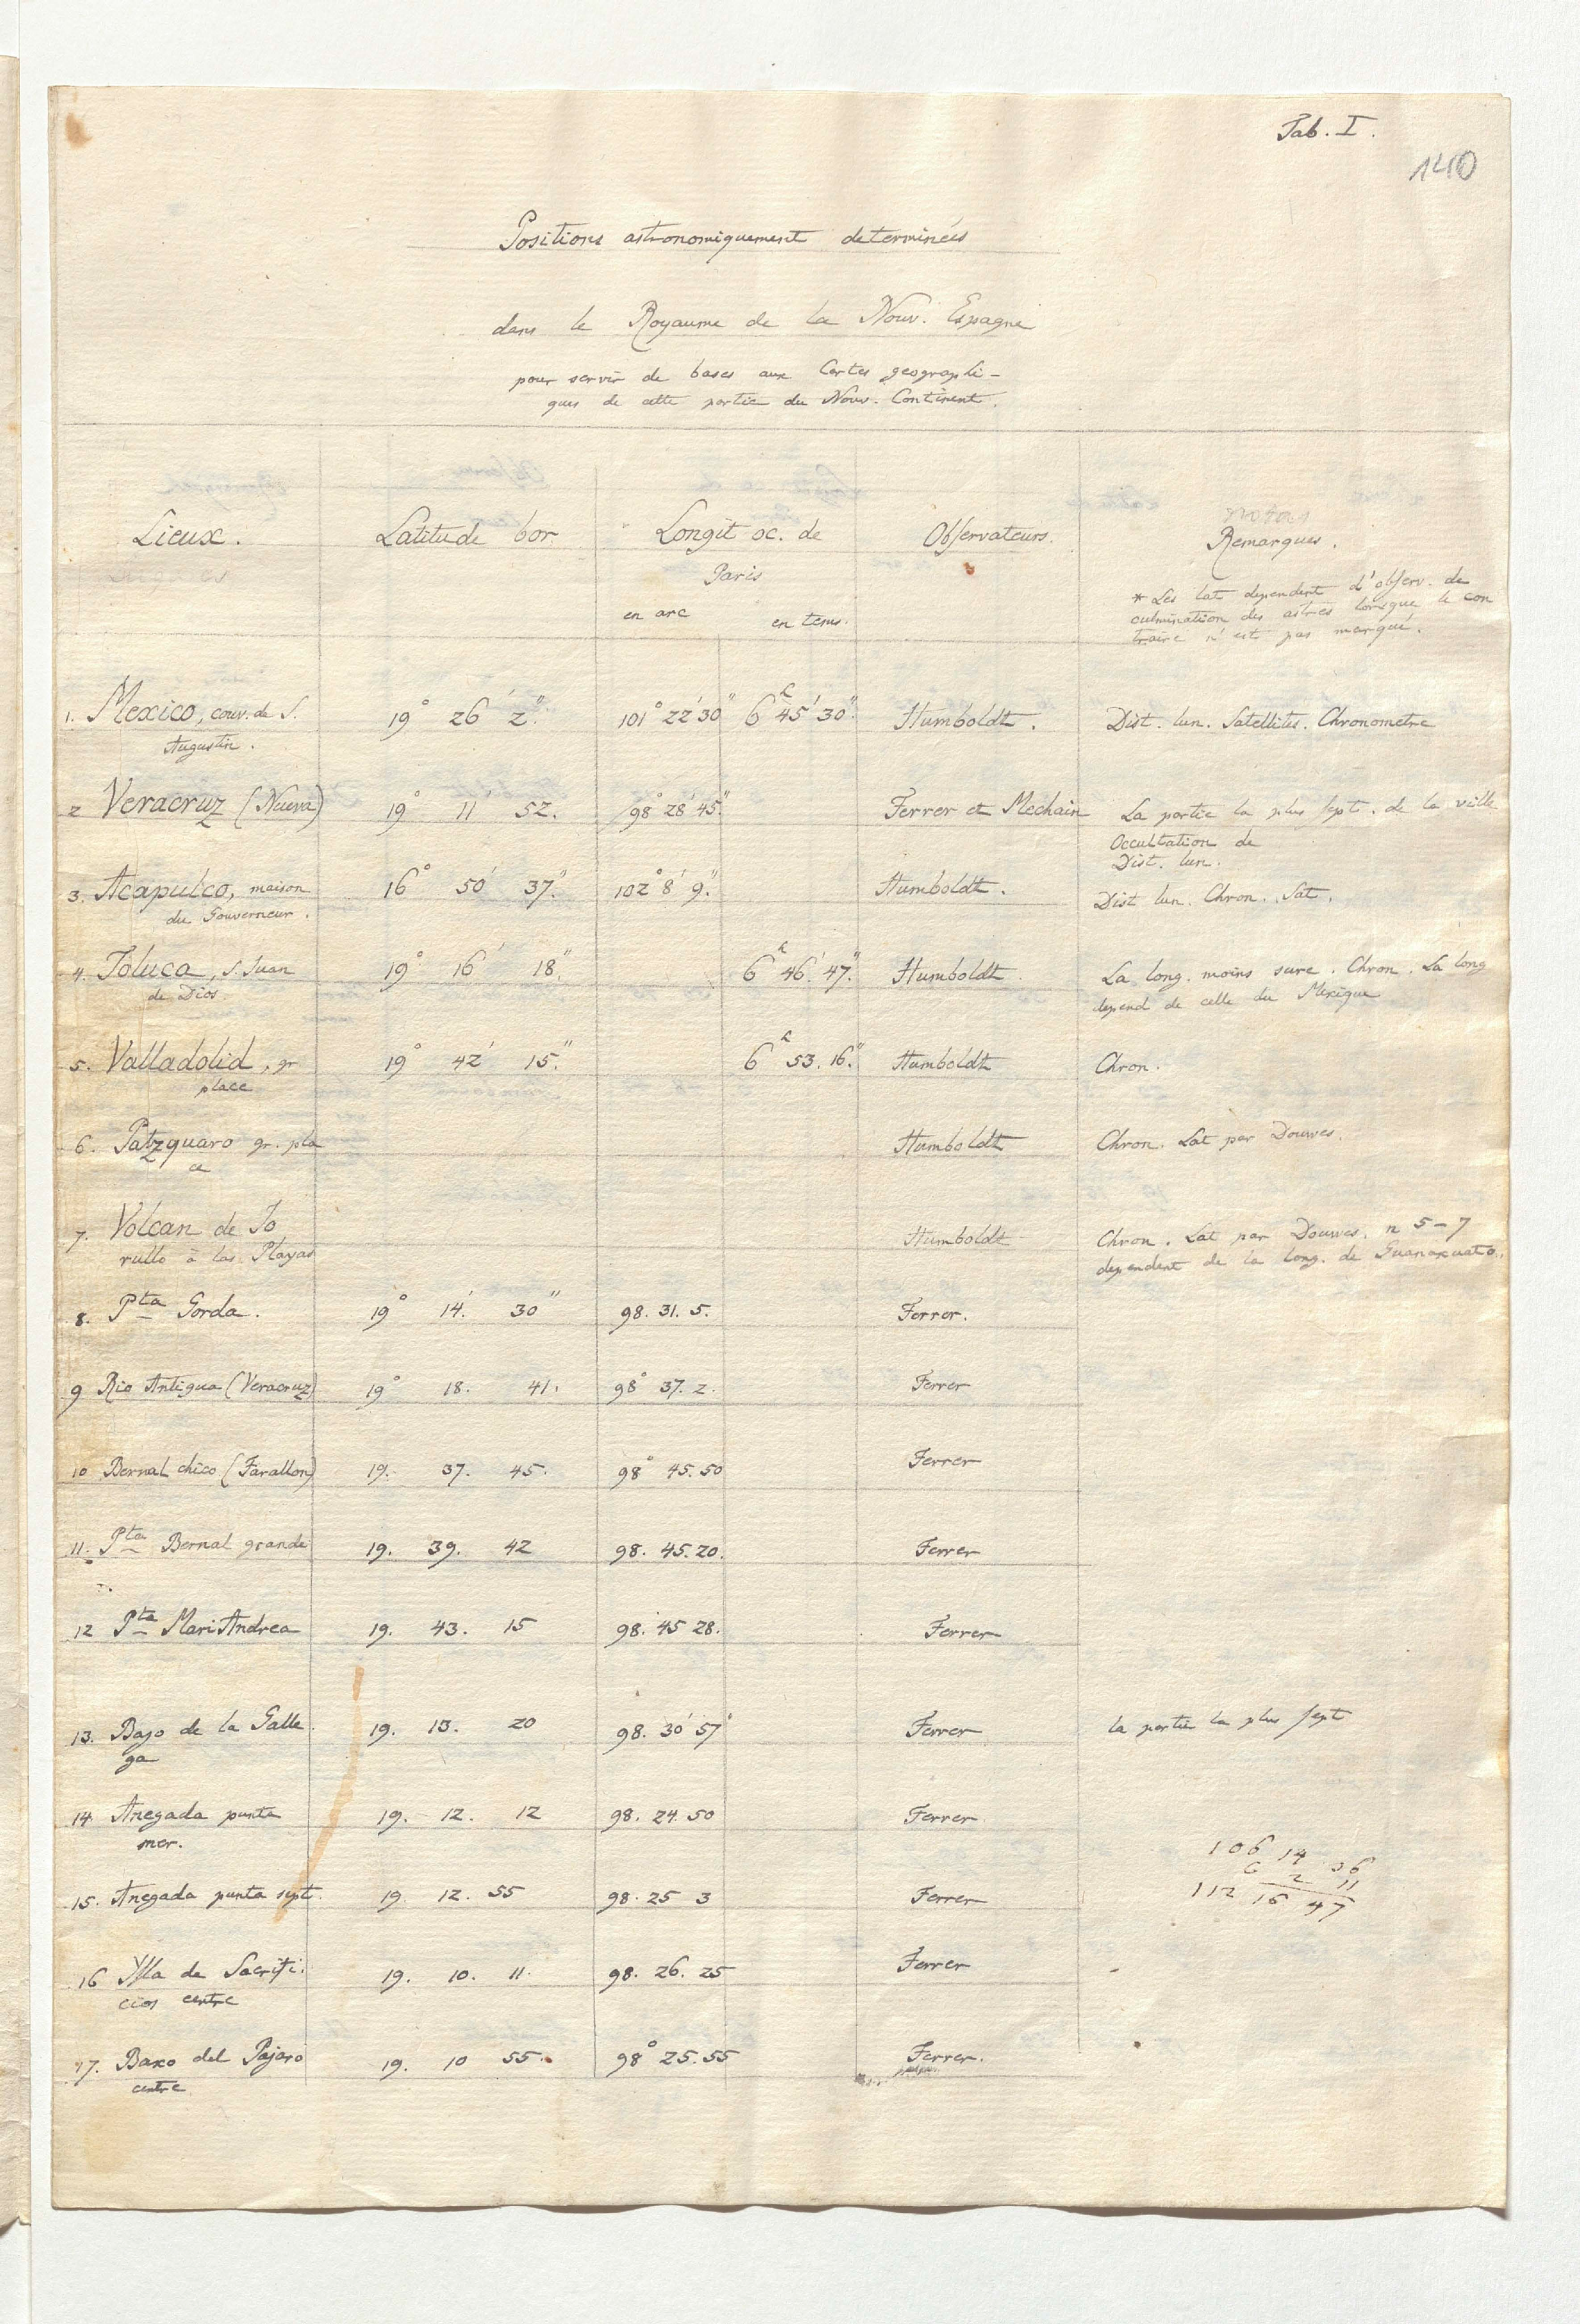 Tab. I.
140
Positions astronomiquement determinées
dans le Royaume de la Nouv. Espagne
pour servir de bases aux Cartes geographi-
ques de cette partie du Nouv. Continent.
Lieux. Latitude bor. Longit oc. de Observateurs. Remarques.
Paris
en arc en tems.
* Les lat dependent d'observ. de
culmination des astres lorsque le con
traire n'est pas marqué.
1. Mexico, couv. de S. 19° 26' 2". 101° 22' 30" 6h 45' 30". Humboldt. Dist. lun. Satellites. Chronometre
Augustin.
2 Veracruz (Nueva) 19° 11' 52. 98° 28' 45". Ferrer et Mechain La partie la plus sept. de la ville
Occultation de
Dist. lun.
3. Acapulco, maison 16° 50' 37". 102° 8' 9". Humboldt. Dist lun. Chron. Sat.
du Gouverneur.
4. Toluca, S. Juan 19° 16' 18". 6h 46' 47". Humboldt La long. moins sure. Chron. La long
de Dios. depend de celle du Mexique
5. Valladolid, gr 19° 42' 15". 6h 53. 16." Humboldt Chron.
place
6. Patzquaro gr. pla Humboldt Chron. Lat par Douwes.
ce
7. Volcan de Jo Humboldt Chron. Lat par Douwes. n 5-7
rullo à las Playas dependent de la long. de Guanaxuato.
8. Pta Gorda. 19° 14'. 30" 98. 31. 5. Ferrer.
9 Rio Antigua (Veracruz) 19° 18. 41. 98° 37. 2. Ferrer
10 Bernal chico (Farallon) 19. 37. 45. 98° 45. 50 Ferrer
11. Pta Bernal grande 19. 39. 42 98. 45. 20. Ferrer
12 Pta Mari Andrea 19. 43. 15 98. 45 28. Ferrer
13. Bajo de la Galle 19. 13. 20 98. 30' 57" Ferrer la partie la plus sept
ga
14. Anegada punta 19. 12. 12 98. 24. 50 Ferrer
mer.
106 14 36
6 2 11
112 16 47
15. Anegada punta sept. 19. 12. 55 98. 25 3 Ferrer
16 Ysla de Sacrifi. 19. 10. 11. 98. 26. 25 Ferrer
cios centre
17. Baxo del Pajaro 19. 10 55. 98° 25. 55 Ferrer.
centre